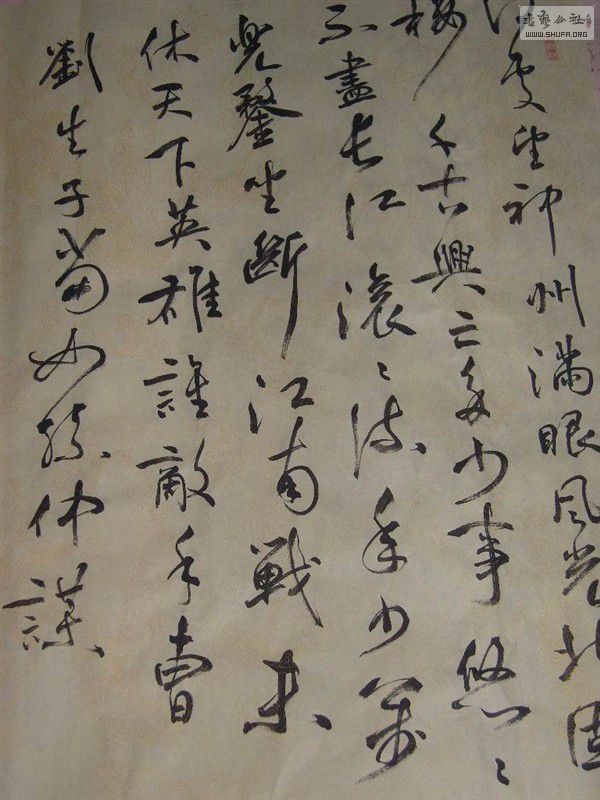 何處望神州滿眼风光北固
樓千古興亡多少事悠〻
不盡長江滾〻流年少萬
兜鍪坐斷江南戰未
休天下英雄誰敵手曹
劉生子當如孫仲謀
書藝公社
WWW.SHUFA.ORG